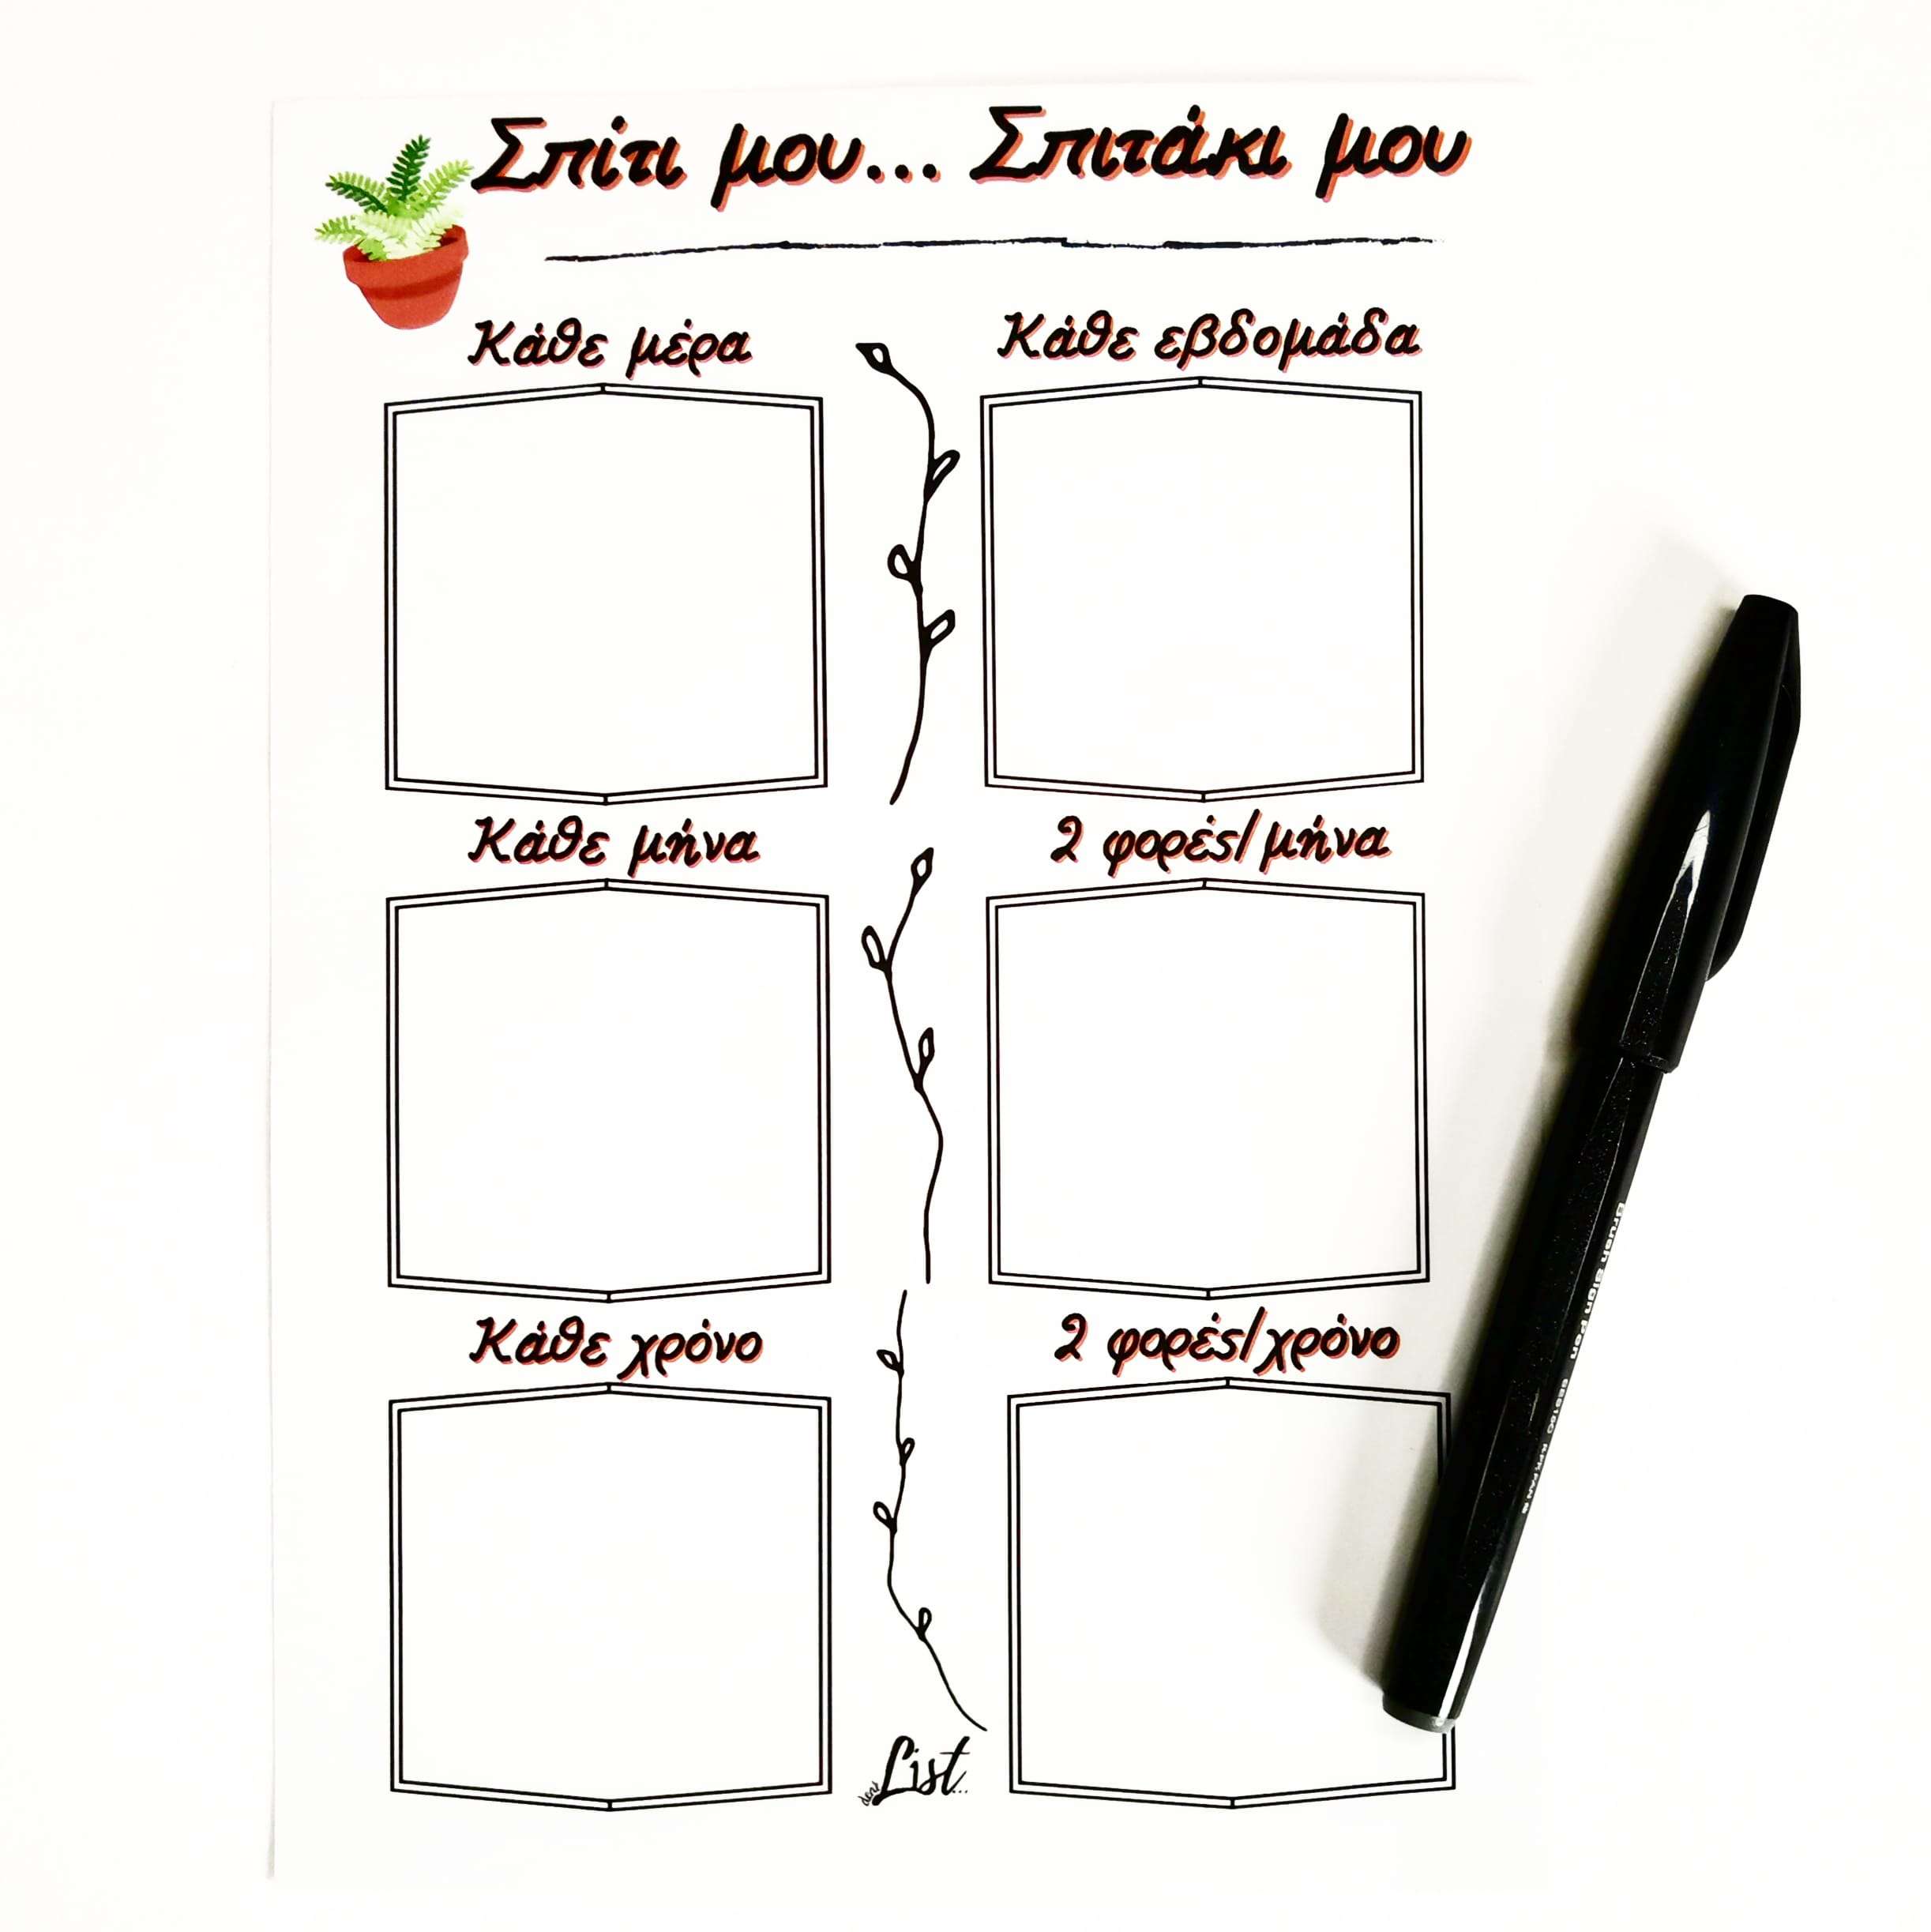 Σπίτι μου... Σπιτάκι μου
Κάθε μέρα
Κάθε εβδομάδα
Κάθε μήνα
2 φορές/μήνα
Κάθε χρόνο
2 φορές/χρόνο
List...
Brush Sign Pen